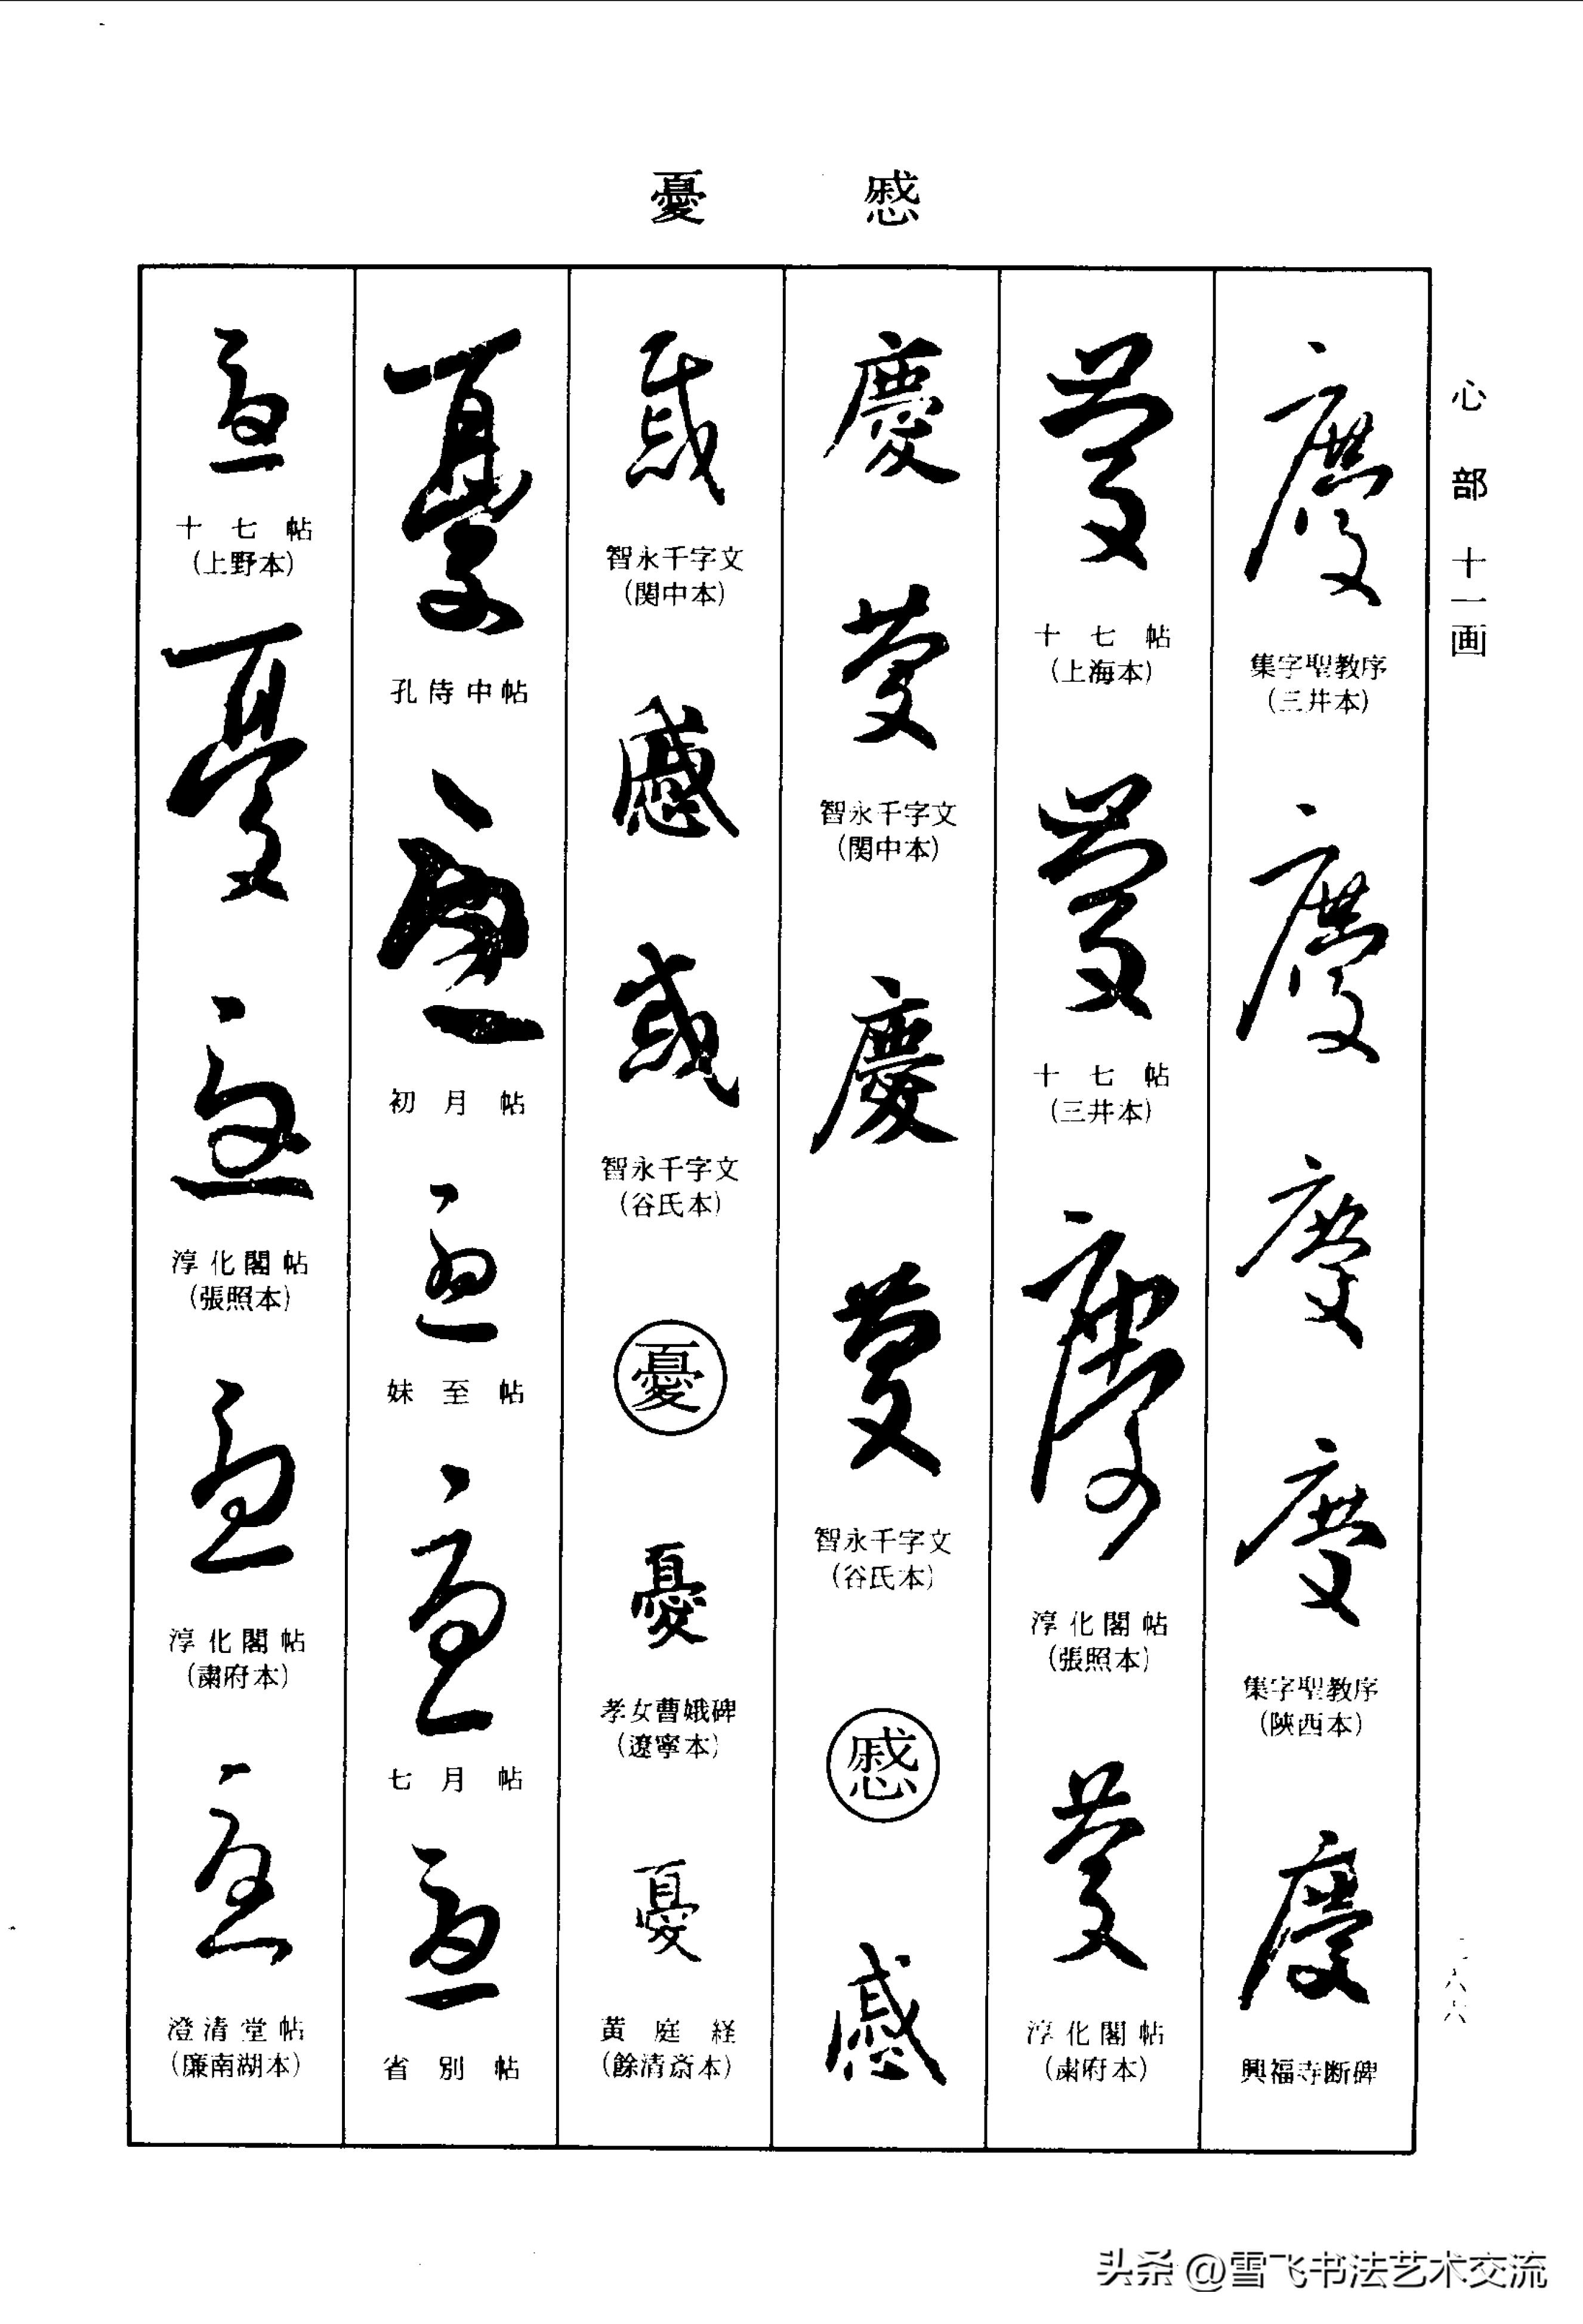 憂 慼
心部 十一画
慶
集字聖教序
(三井本)
慶
慶
慶
集字聖教序
(陝西本)
慶
興福寺断碑
慶
十七帖
(上海本)
慶
十七帖
(三井本)
慶
淳化閣帖
(張照本)
慶
淳化閣帖
(粛府本)
慶
慶
智永千字文
(関中本)
慶
慶
智永千字文
(谷氏本)
慼
慼
慼
智永千字文
(関中本)
慼
慼
智永千字文
(谷氏本)
憂
憂
孝女曹娥碑
(遼寧本)
憂
黄庭経
(餘清斎本)
憂
孔侍中帖
憂
初月帖
憂
妹至帖
憂
七月帖
憂
省別帖
憂
十七帖
(上野本)
憂
憂
淳化閣帖
(張照本)
憂
淳化閣帖
(粛府本)
憂
澄清堂帖
(廉南湖本)
头条 @雪飞书法艺术交流